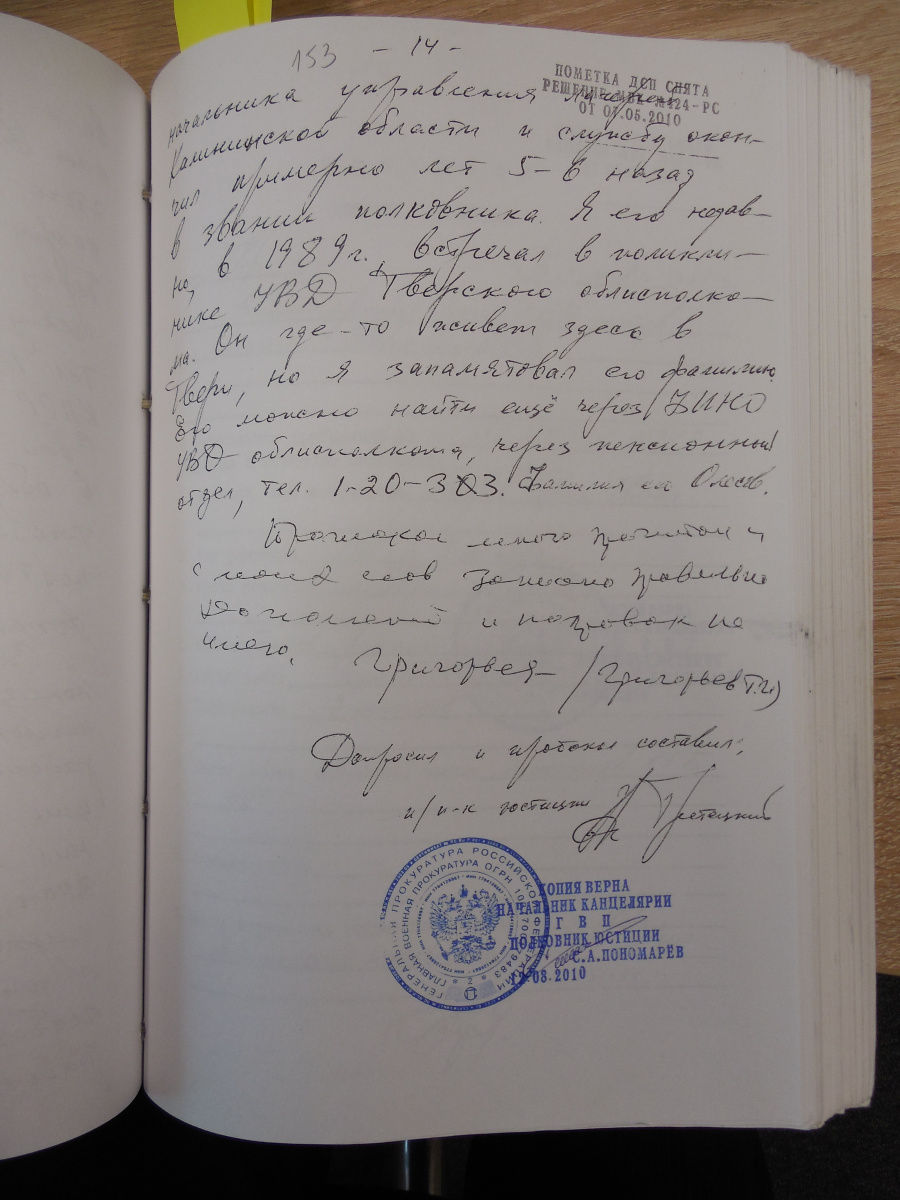 153 - 14 -
ПОМЕТКА ДСП СНЯТА
РЕШЕНИЕ МВК №424-РС
ОТ 07.05.2010
начальника управления лагерей
Калининской области и службу окон-
чил примерно лет 5-6 назад
в звании полковника. Я его недав-
но, в 1989 г., встречал в поликли-
нике УВД Тверского облисполко-
ма. Он где-то живет здесь в
Твери, но я запамятовал его фамилию.
Его можно найти ещё через
УВД облисполкома, через пенсионный
отдел, тел. 1-20-303. Фамилия его
Протокол мною прочитан и
с моих слов записано правильно
дополнений и поправок не
имею. Григорьев / Григорьев
Допросил и протокол составил:
п/п-к юстиции
ГЕНЕРАЛЬНАЯ ПРОКУРАТУРА РОССИЙСКОЙ ФЕДЕРАЦИИ
ГЛАВНАЯ ВОЕННАЯ ПРОКУРАТУРА ОГРН
КОПИЯ ВЕРНА
НАЧАЛЬНИК КАНЦЕЛЯРИИ
Г В П
ПОЛКОВНИК ЮСТИЦИИ
С.А.ПОНОМАРЁВ
12.08.2010